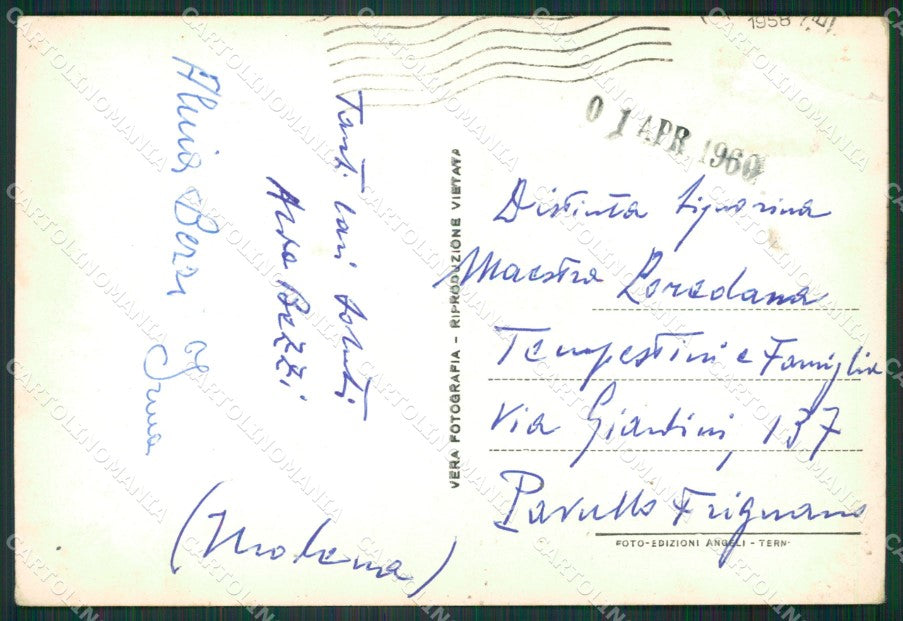 1958
01 APR 1960
Tanti cari saluti
Alda Bezzi
Irma
(Modena)
VERA FOTOGRAFIA - RIPRODUZIONE VIETATA
Distinta Signorina
Maestra Loredana
Tempestini e Famiglia
Via Giardini, 137
Pavullo Frignano
FOTO-EDIZIONI ANGELI - TERNI
CARTOLINOMANIA